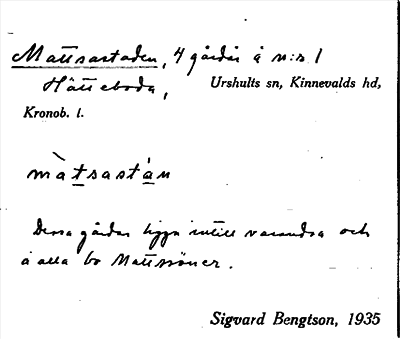 Mattsastaden, 4 gårdar å n:s 1
Hätteboda, Urshults sn, Kinnevalds hd,
Kronob. l.
màtsastán
Dessa gårdar ligga intill varandra och
å alla bo Mattssöner.
Sigvard Bengtson, 1935